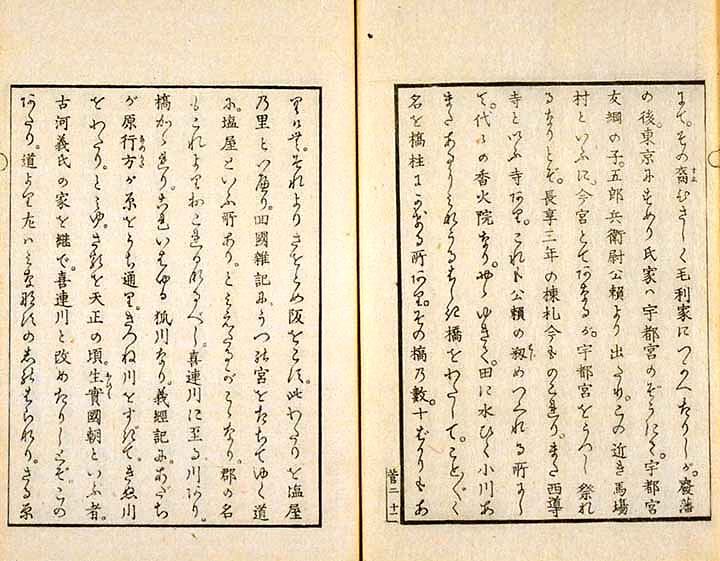 にて。その裔ひさしく毛利家につかへたりしが。廢藩
の後。東京にすめり氏家ハ宇都宮のぞうにて。宇都宮
友綱の子。五郎兵衛尉公頼より出たり。この近き馬場
村といふに。今宮とてあなるが。宇都宮をうつし祭れ
るなりとぞ。長享三年の棟札今ものこれり。また西導
寺といふ寺あり。これも公頼の剏めつくれる所にし
て。代々の香火院なり。やゝゆきて。田に水ひく小川あ
またあり 橋をわたして。ことごとく
名を橋柱に 所あり。その橋乃數。十ばかりもあ
菅二 十一
それよりさをとめ阪をこえ。此わたりを塩屋
乃里といへり。回國雑記に。うつの宮をたちてゆく道
に。塩屋といふ所あり。とみえたるがこゝなり。郡の名
もこれよりおこれるなるべし。喜連川に至る川あり。
橋かゝれり。これいはゆる狐川なり。義經記に。あだち
が原行方が原をうち通り。きつね川をすぎて。きぬ川
をわたり。とみゆ。さるを天正の頃。生實國朝といふ者。
古河義氏の家を継で。喜連川と改めたりしとぞ。この
わたり。道より左ハみな那須の られり。さる原